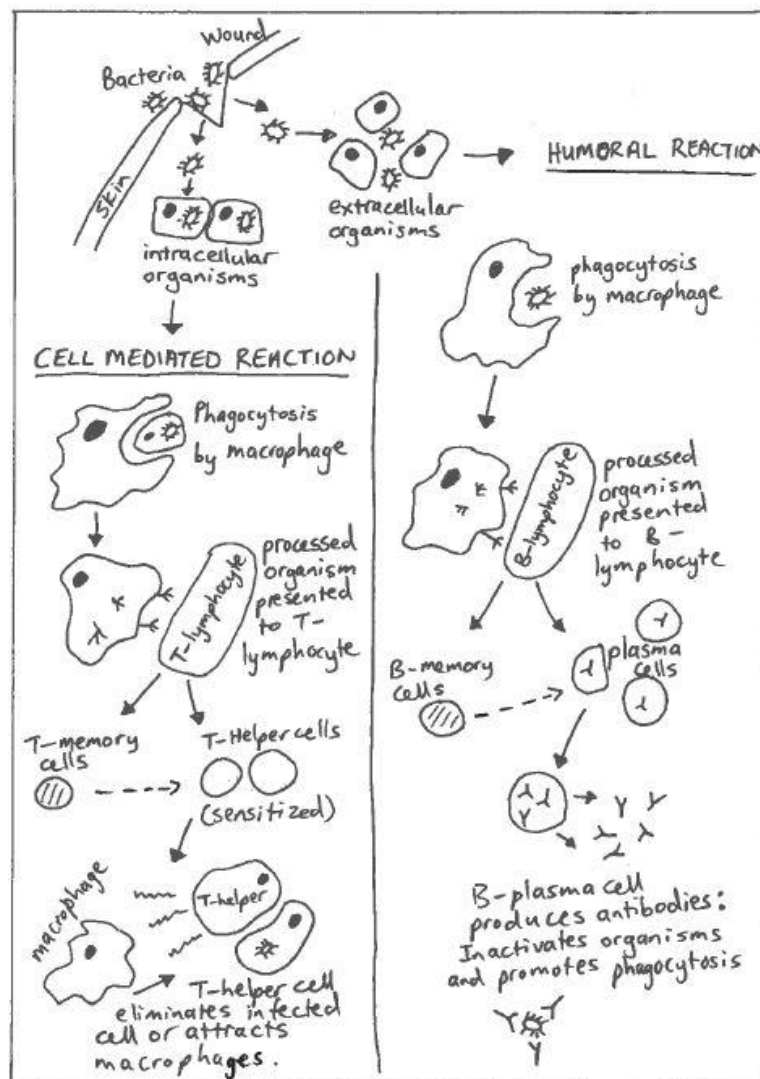 Wound
Bacteria
Skin
intracellular
organisms
extracellular
organisms
HUMORAL REACTION
CELL MEDIATED REACTION
Phagocytosis
by macrophage
T-lymphocyte
processed
organism
presented
to T-
lymphocyte
T-memory
cells
T-Helper cells
(sensitized)
macrophage
T-helper
T-helper cell
eliminates infected
cell or attracts
macrophages.
phagocytosis
by macrophage
B-lymphocyte
processed
organism
presented
to B-
lymphocyte
B-memory
cells
plasma
cells
B-plasma cell
produces antibodies:
Inactivates organisms
and promotes phagocytosis